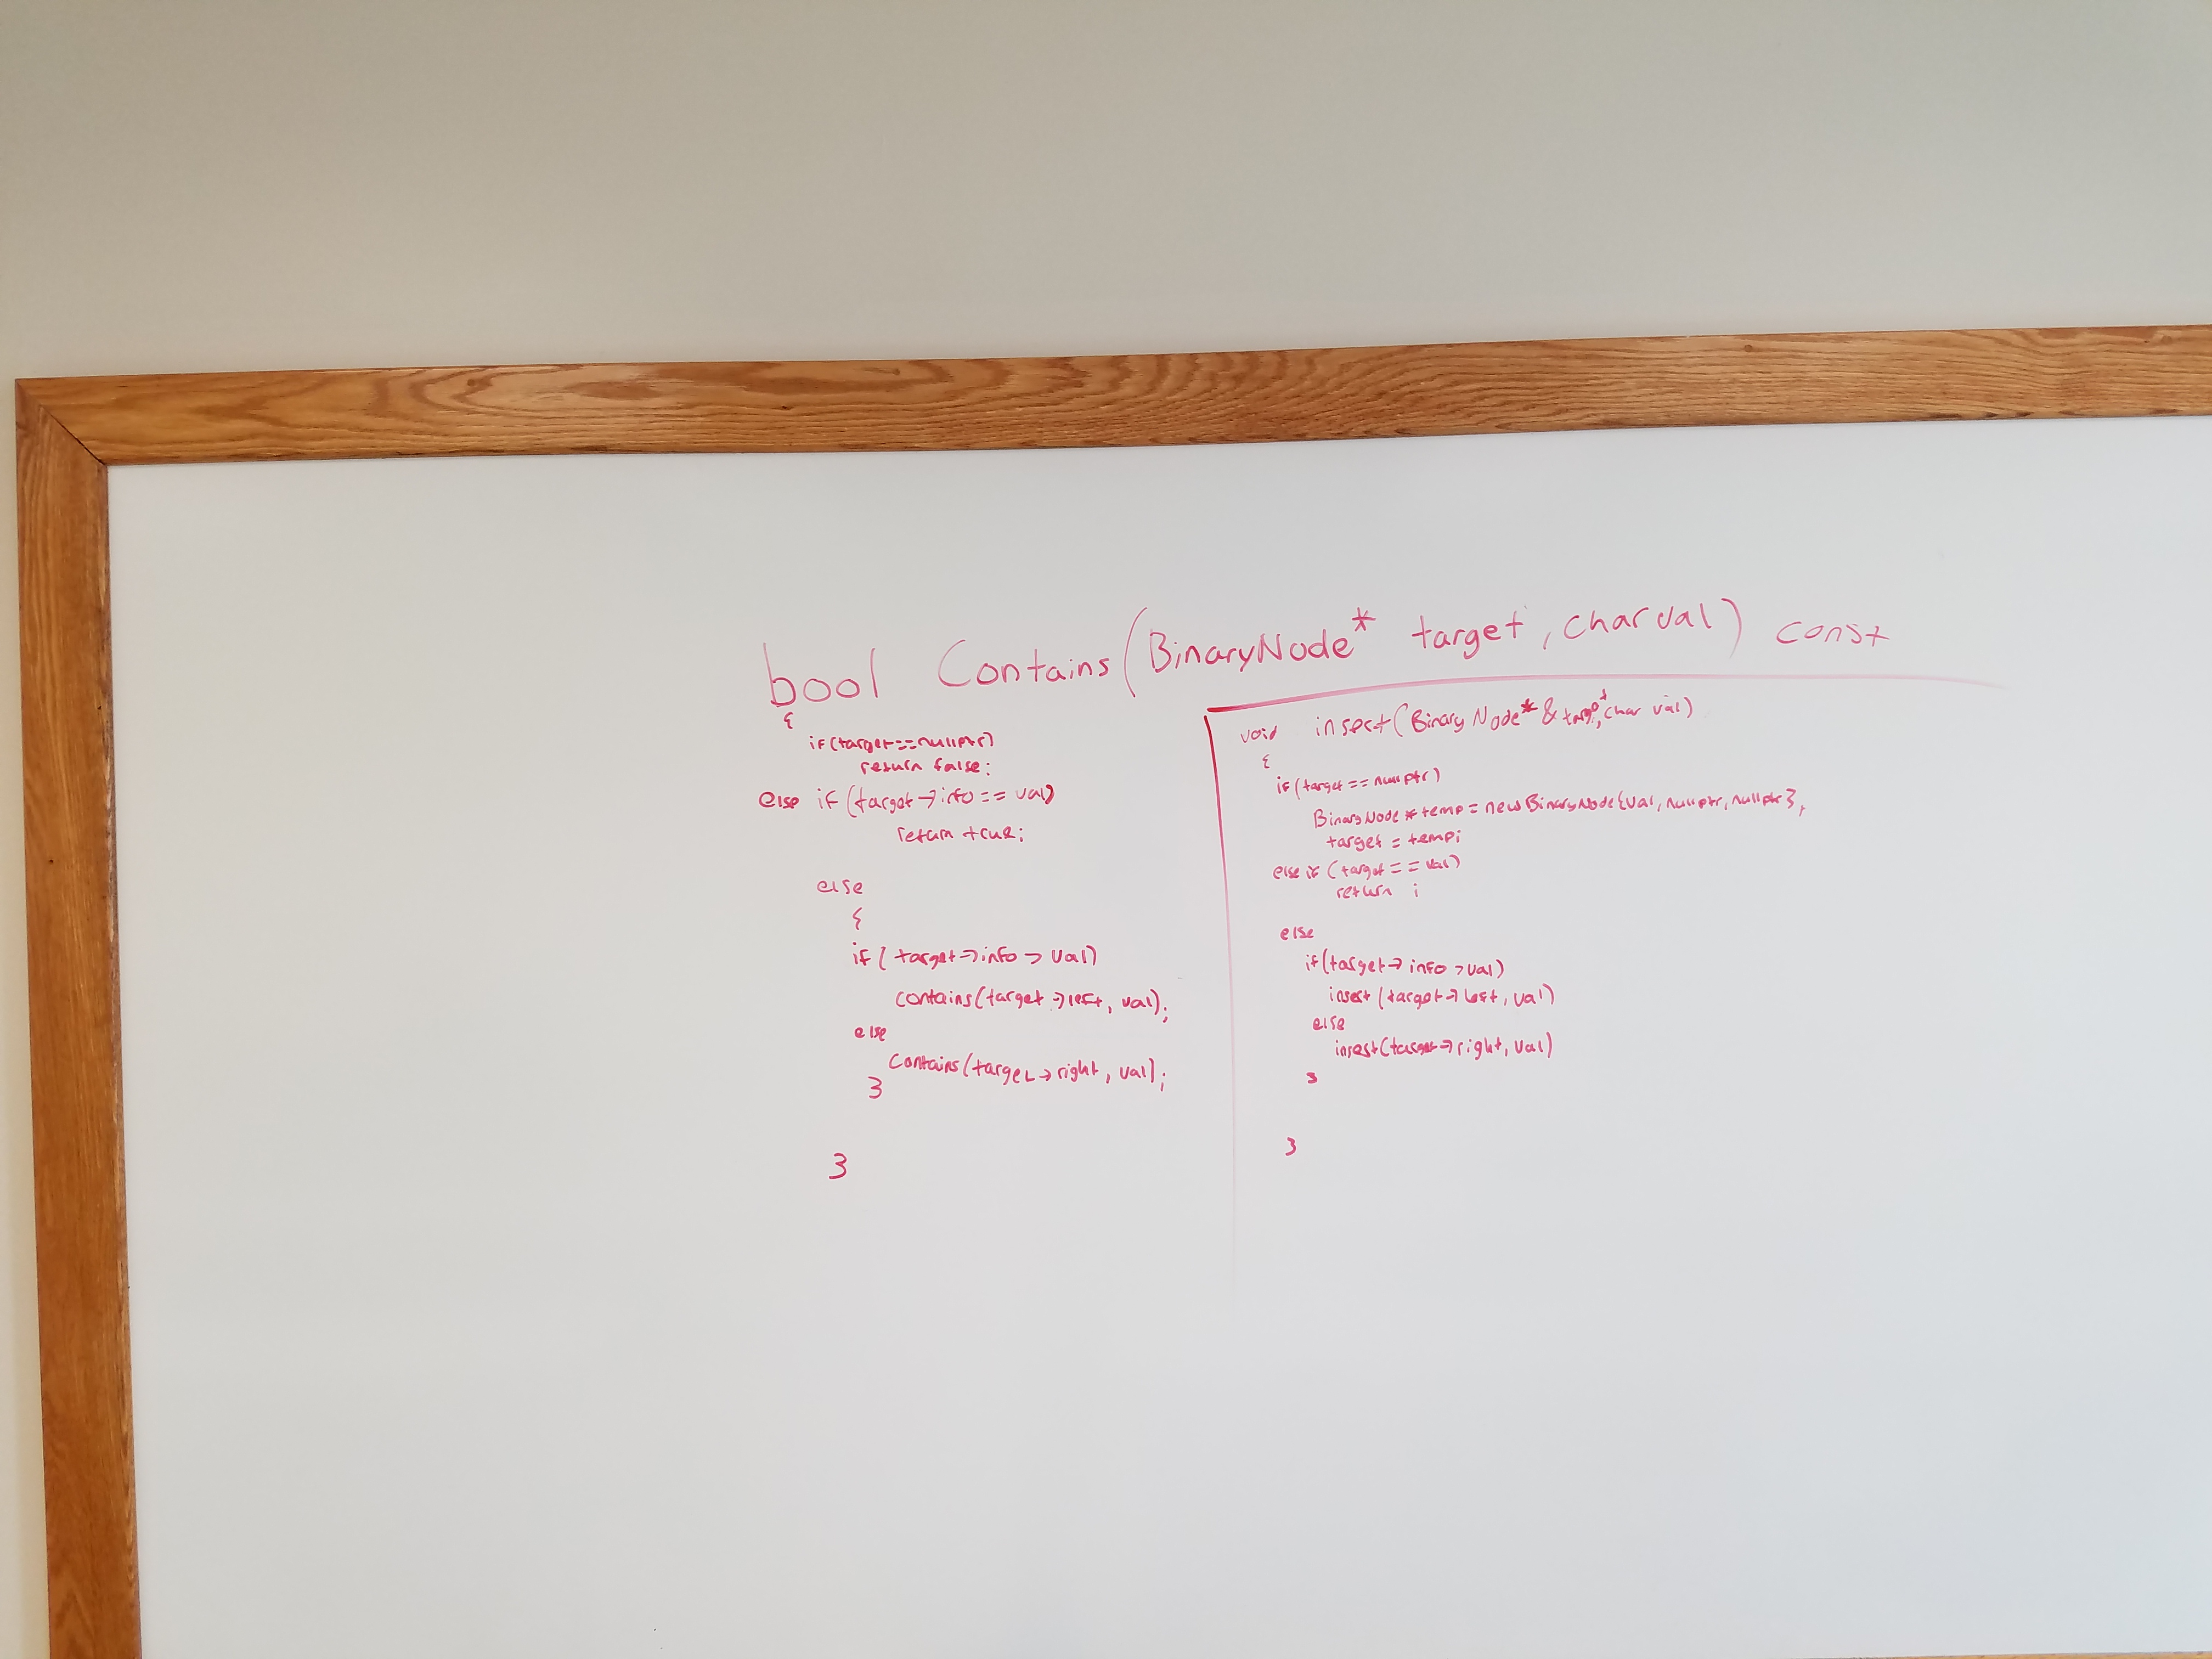 bool Contains(BinaryNode* target, char val) const
{
if(target==nullptr)
return false;
else if (target->info == val)
return true;
else
{
if( target->info > val)
contains(target->left, val);
else
contains(target->right, val);
}
}
void insert(Binary Node* & target, char val)
{
if(target == nullptr)
BinaryNode * temp = new BinaryNode{val, nullptr, nullptr};
target = temp;
else if (target == val)
return ;
else
if(target-> info > val)
insert (target-> left, val)
else
insert(target-> right, val)
}
}